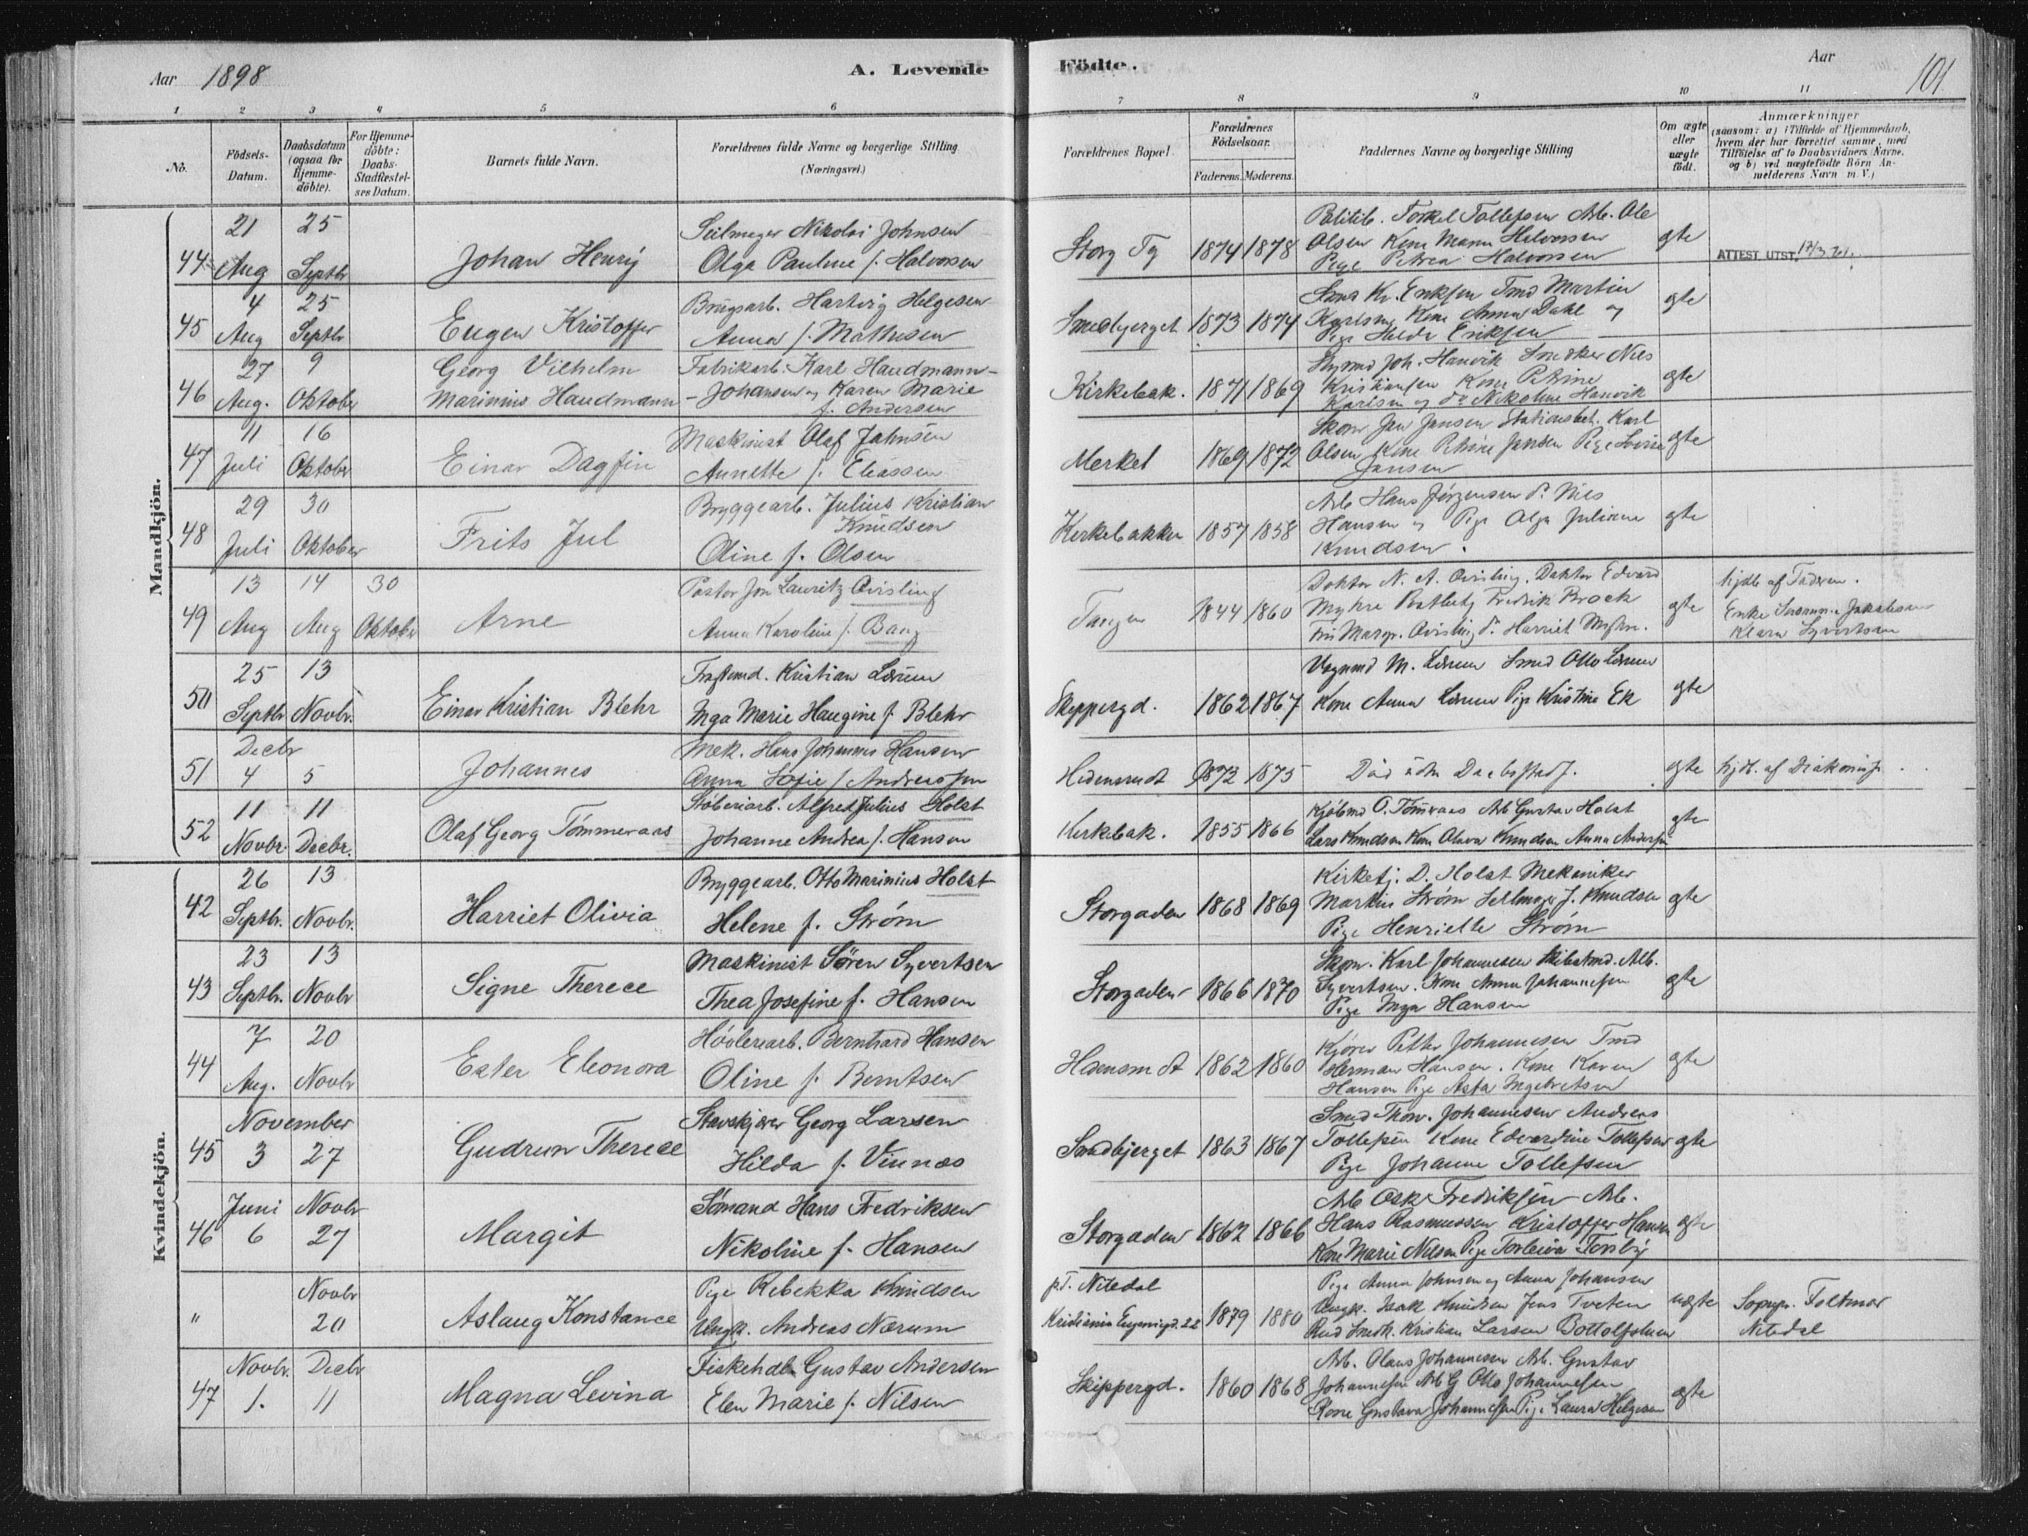 Aar 1898
A. Levende
Födte.
Aar
101
1 2 3 4 5 6 7 8 9 10 11
No.
Födsels-Datum.
Daabsdatum (ogsaa for Hjemme-döbte).
For Hjemme-döbte: Daabs-Stadfæstel-ses Datum.
Barnets fulde Navn.
Forældrenes fulde Navne og borgerlige Stilling (Næringsvei.)
Forældrenes Bopæl.
Forældrenes Födselsaar.
Faderens. Moderens.
Faddernes Navne og borgerlige Stilling
Om ægte eller uægte födt.
Anmærkninger
(saasom: a) i Tilfælde af Hjemmedaab, hvem der har forrettet samme, med Tilföielse af to Daabsvidners Navne, og b) ved uægtefödte Börn An-melderens Navn m. V.)
Mandkjön.
44 21 Aug 25 Septbr Johan Henry
Seilmager Nikolai Johnsen
Olga Pauline f. Halvorsen
Storg 1874 1878
Torkel Tollefsen Arb. Ole
Olsen Kone Maren Halvorsen
Pige Petrea Halvorsen
ægte
ATTEST UTST. 17/3.21.
45 4 Aug 25 Septbr Eugen Kristoffer
Brugsarb. Hartvig Helgesen
Anna f. Mathisen
Smedbjerget 1873 1874
Kr. Eriksen Tmd Martin
Karlsen Kone Anna Dahl og
Pige Hulda Eriksen
ægte
46 27 Aug. 9 Oktober Georg Vilhelm
Marinius Haudmann
Fabrikarb. Karl Haudmann-
-Johansen og Karen Marie
f. Andersen
Kirkebak. 1871 1869
Styrmd Joh. Hanvik Snedker Nils
Kristiansen Kone Petrine
Karlsen og do Nikoline Hanvik
ægte
47 11 Juli 16 Oktober Einar Dagfin
Maskinist Olaf Jahnsen
Annette f. Eliassen
Merket 1869 1872
Skom Jan Jansen Stationsbet. Karl
Olsen Kone Petrine Jansen Pige Lovise
Jansen
ægte
48 29 Juli 30 Oktober Frits Jul
Bryggearb. Julius Kristian
Knudsen
Oline f. Olsen
Kirkebakken 1857 1858
Arb Hans Jörgensen do Nils
Hansen og Pige Olga Juliane
Knudsen.
ægte
49 13 Aug 14 Aug 30 Oktober Arne
Pastor Jon Lauritz Qvisling
Anna Karoline f. Bang
Tangen 1844 1860
Doktor N. A. Qvisling. Doktor Edvard
Myhre Fredrik Brock
Margr. Qvisling do Harriet Myhre.
ægte
hjdb af Faderen.
Enke Jakobsen
Klara Syvertsen
50 25 Septbr 13 Novbr. Einar Kristian Blehr
Fragtemd. Kristian Lerum
Inga Marie Haugine f. Blehr
Skippergd. 1862 1867
Vognmd M. Lerum Smed Otto Lerum
Kone Anna Lerum Pige Kristine Ek
ægte
51 Decbr 4 5 Johannes
Mek. Hans Johannes Hansen
Anna Sofie f. Andreassen
Hedensrudt 1872 1875
Död uden Daabsstadf.
ægte Hjdb. af Diakonisse
52 11 Novbr. 11 Decbr. Olaf Georg Tömmeraas
Støberiarb. Alfred Julius Holst
Johanne Andrea f. Hansen
Kirkebak. 1855 1866
Kjöbmd O. Tömraas Arb Gustav Holst
Lars Knudsen Kone Olava Knudsen Anna Andersen
ægte
Kvindekjön.
42 26 Septbr. 13 Novbr. Harriet Olivia
Bryggearb. Otto Marinius Holst
Helene f. Strøm
Storgaden 1868 1869
Kirketj. D. Holst Mekaniker
Markus Strøm J. Knudsen
Pige Henriette Strøm
ægte
43 23 Septbr. 13 Novbr Signe Therece
Maskinist Sören Syvertsen
Thea Josefine f. Hansen
Storgaden 1866 1870
Skom. Karl Johannesen Skibstmd. Alb.
Syvertsen. Kone Anna Johannesen
Pige Inga Hansen
ægte
44 7 Aug. 20 Novbr Ester Eleonora
Høvleriarb. Bernhard Hansen
Oline f. Berntsen
1862 1860
Kjörer Petter Johannesen Tmd
Herman Hansen. Kone Karen
Hansen Pige Asta Ingebretsen
ægte
45 November 3 27 Gudrun Therece
Stavskjærer Georg Larsen
Hilda f. Vinnæs
Sandbjerget 1863 1867
Smed Thorv. Johannesen Andreas
Tollefsen Kone Edvardine Tollefsen
Pige Johanne Tollefsen
ægte
46 Juni 6 Novbr 27 Margit
Sömand Hans Fredriksen
Nikoline f. Hansen
Storgaden 1862 1866
Arb Oskr Fredriksen Arb.
Hans Rasmussen Kristoffer Hansen
Kone Marie Nilsen Pige Torleiva Torsby
ægte
" Novbr 20 Aslaug Konstance
Pige Rebekka Knudsen
Ungk. Andreas Nærum
pt. Nitedal
Kristiania 22 1879 1880
Pige Anna Johnsen og Anna Johansen
Ungk. Isak Knudsen Jens Tveten
Kristian Larsen Bottolfsen
uægte
Sognpr. Foltmar
Nitedal
47 Novbr. 1. Decbr 11 Magna Levina
Fiskehdl. Gustav Andersen
Elen Marie f. Nilsen
Skippergd. 1860 1868
Arb. Olaus Johannesen Arb. Gustav
Johannesen Arb G Otto Johannesen
Kone Gustava Johannesen Pige Laura Helgesen
ægte